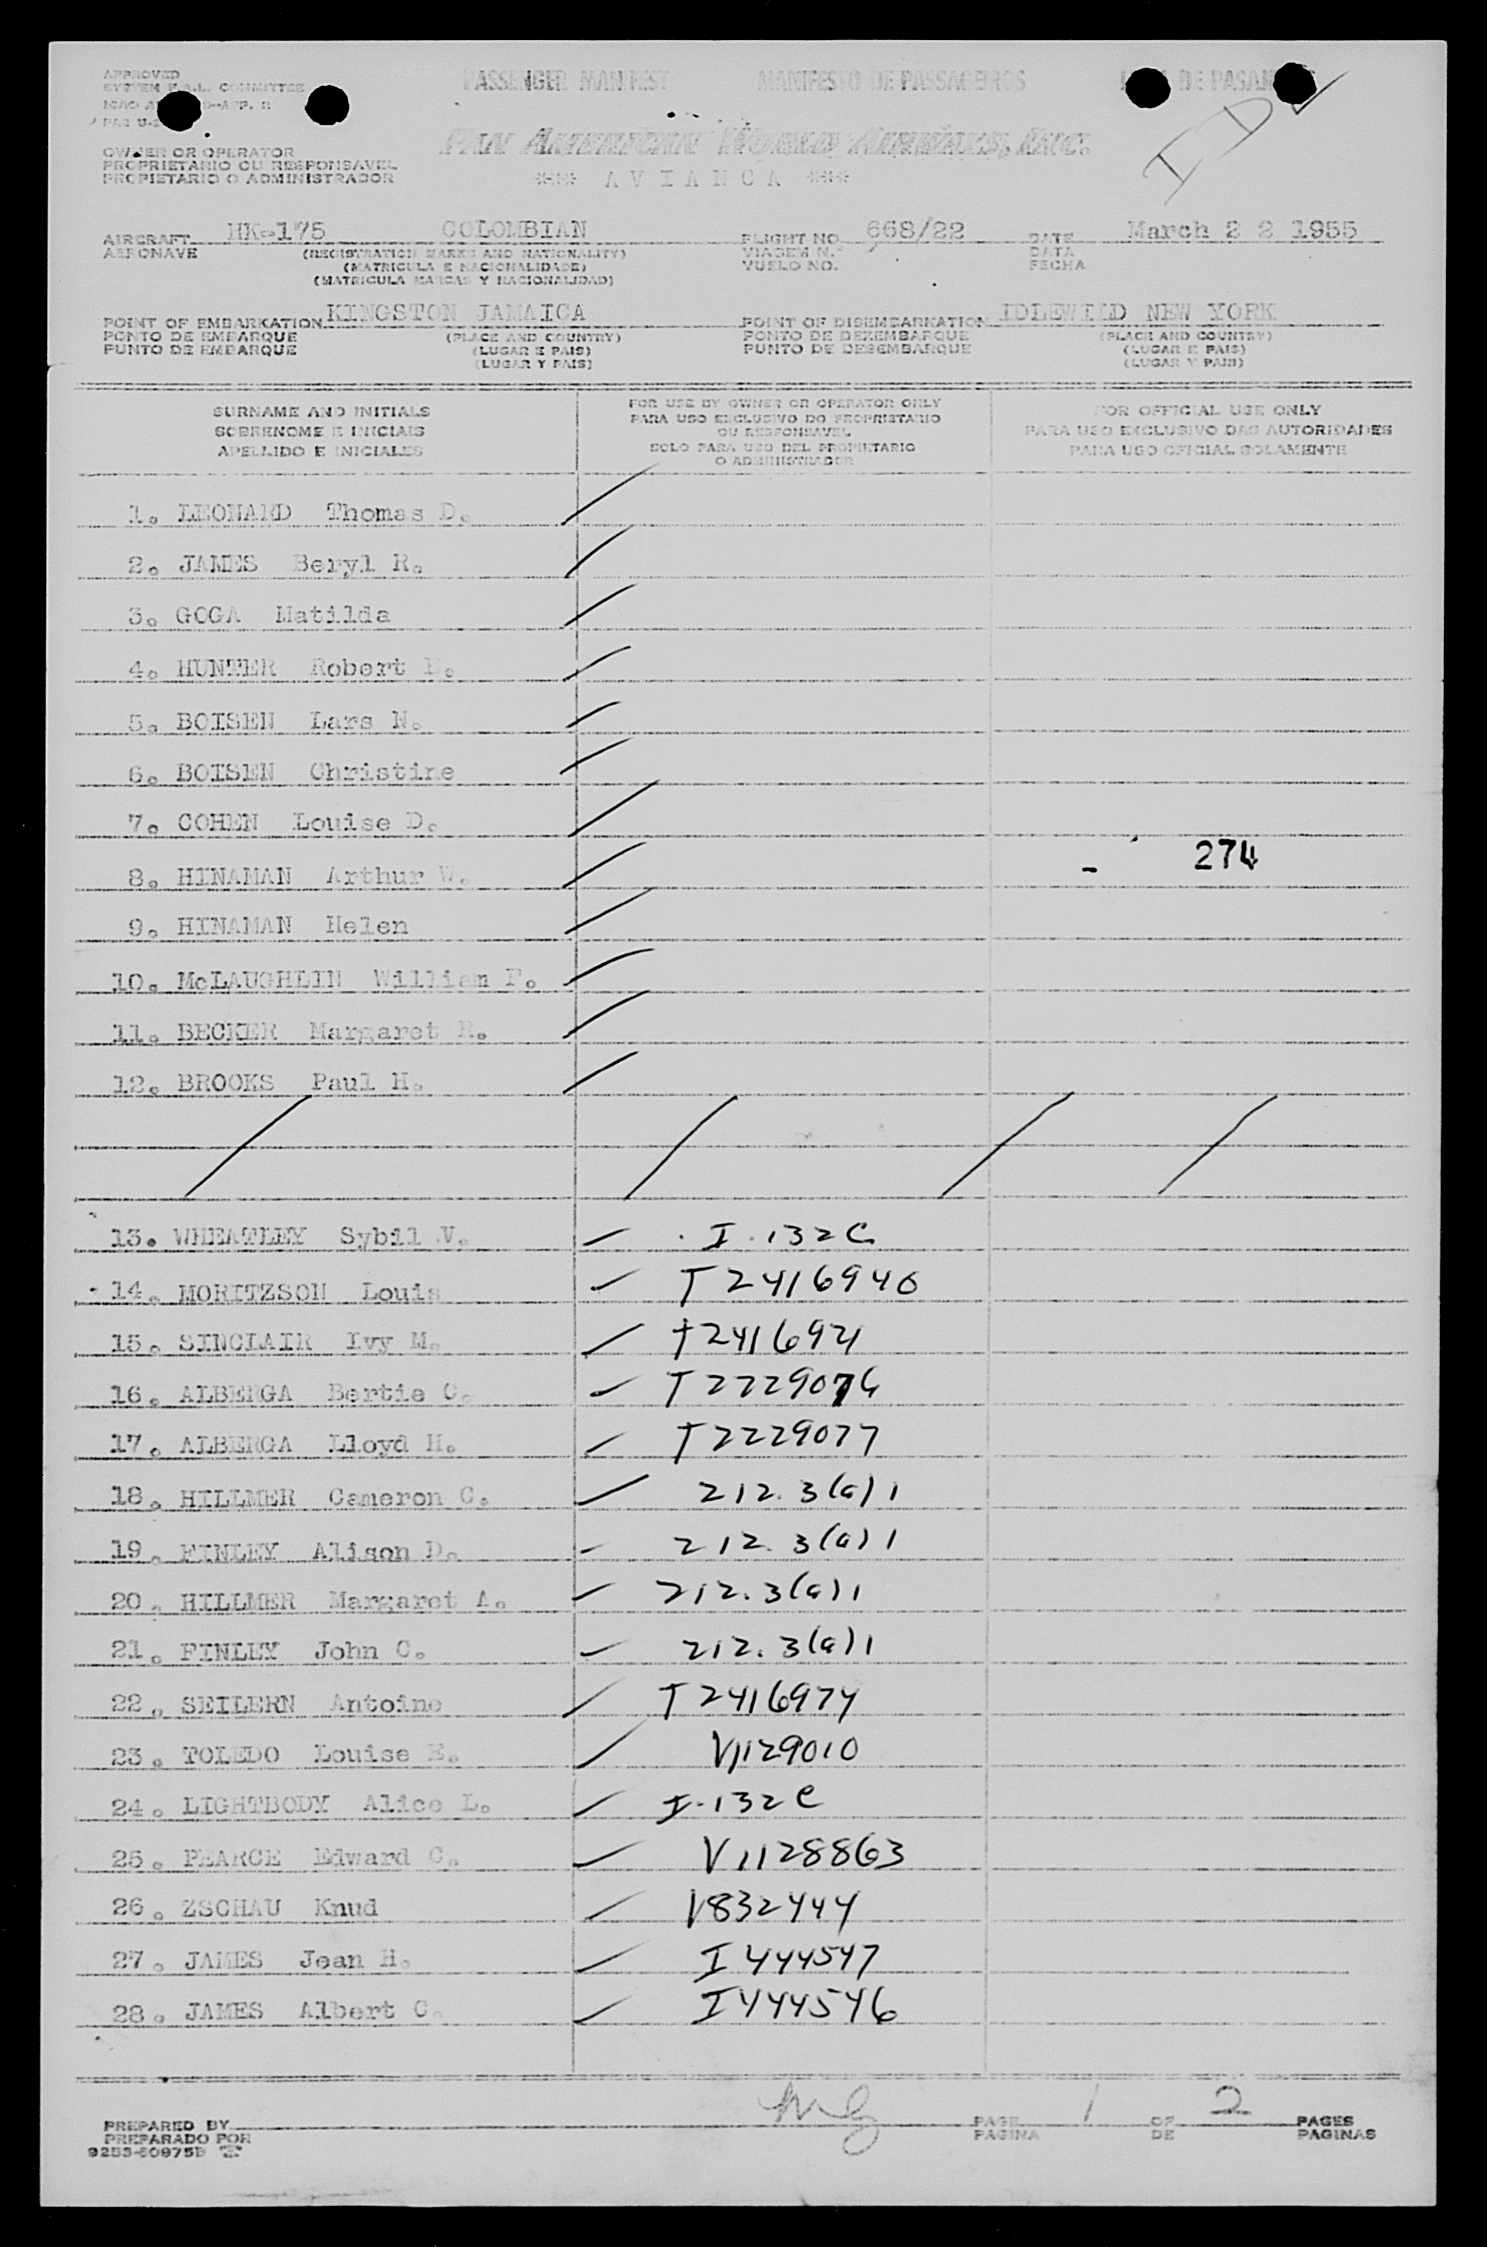 APPROVED
SYSTEM F.A.L. COMMITTEE
PASSENGER MANIFEST MANIFESTO DE PASSAGEIROS DE
IDL
OWNER OR OPERATOR
PROPRIETARIO OU RESPONSAVEL
PROPIETARIO O ADMINISTRADOR
PAN AMERICAN WORLD AIRWAYS, INC.
*** A V I A N C A ***
AIRCRAFT HK-175 COLOMBIAN FLIGHT NO. 668/22 DATE March 2 2 1955
AERONAVE (REGISTRATION MARKS AND NATIONALITY) VIAGEM N.º DATA
(MATRICULA E NACIONALIDADE) VUELO NO. FECHA
(MATRICULA MARCAS Y NACIONALIDAD)
POINT OF EMBARKATION KINGSTON JAMAICA POINT OF DISEMBARKATION IDLEWILD NEW YORK
PONTO DE EMBARQUE (PLACE AND COUNTRY) PONTO DE DEZEMBARQUE (PLACE AND COUNTRY)
PUNTO DE EMBARQUE (LUGAR E PAIS) PUNTO DE DESEMBARQUE (LUGAR E PAIS)
(LUGAR Y PAIS) (LUGAR Y PAIS)
SURNAME AND INITIALS
SOBRENOME E INICIAIS
APELLIDO E INICIALES
FOR USE BY OWNER OR OPERATOR ONLY
PARA USO EXCLUSIVO DO PROPRIETARIO
OU RESPONSAVEL
SOLO PARA USO DEL PROPIETARIO
O ADMINISTRADOR
FOR OFFICIAL USE ONLY
PARA USO EXCLUSIVO DAS AUTORIDADES
PARA USO OFICIAL SOLAMENTE
1. LEONARD Thomas D.
2. JAMES Beryl R.
3. GOGA Matilda
4. HUNTER Robert
5. BOISEN Lars N.
6. BOISEN Christine
7. COHEN Louise D.
274
8. HINAMAN Arthur W.
9. HINAMAN Helen
10. McLAUGHLIN William F.
11. BECKER Margaret R.
12. BROOKS Paul H.
13. WHEATLEY Sybil V. I-132C
14. MORITZSON Louis T2416940
15. SINCLAIR Ivy M. T241694
16. ALBERGA Bertie C. T2229076
17. ALBERGA Lloyd H. T2229077
18. HILLMER Cameron C. 212.3(a)1
19. FINLEY Alison D. 212.3(a)1
20. HILLMER Margaret A. 212.3(a)1
21. FINLEY John C. 212.3(a)1
22. SEILERN Antoine T2416974
23. TOLEDO Louise E. V1129010
24. LIGHTBODY Alice L. I-132C
25. PEARCE Edward C. V1128863
26. ZSCHAU Knud V832444
27. JAMES Jean H. I444547
28. JAMES Albert C. I444546
PREPARED BY PAGE 1 OF 2 PAGES
PREPARADO POR PAGINA DE PAGINAS